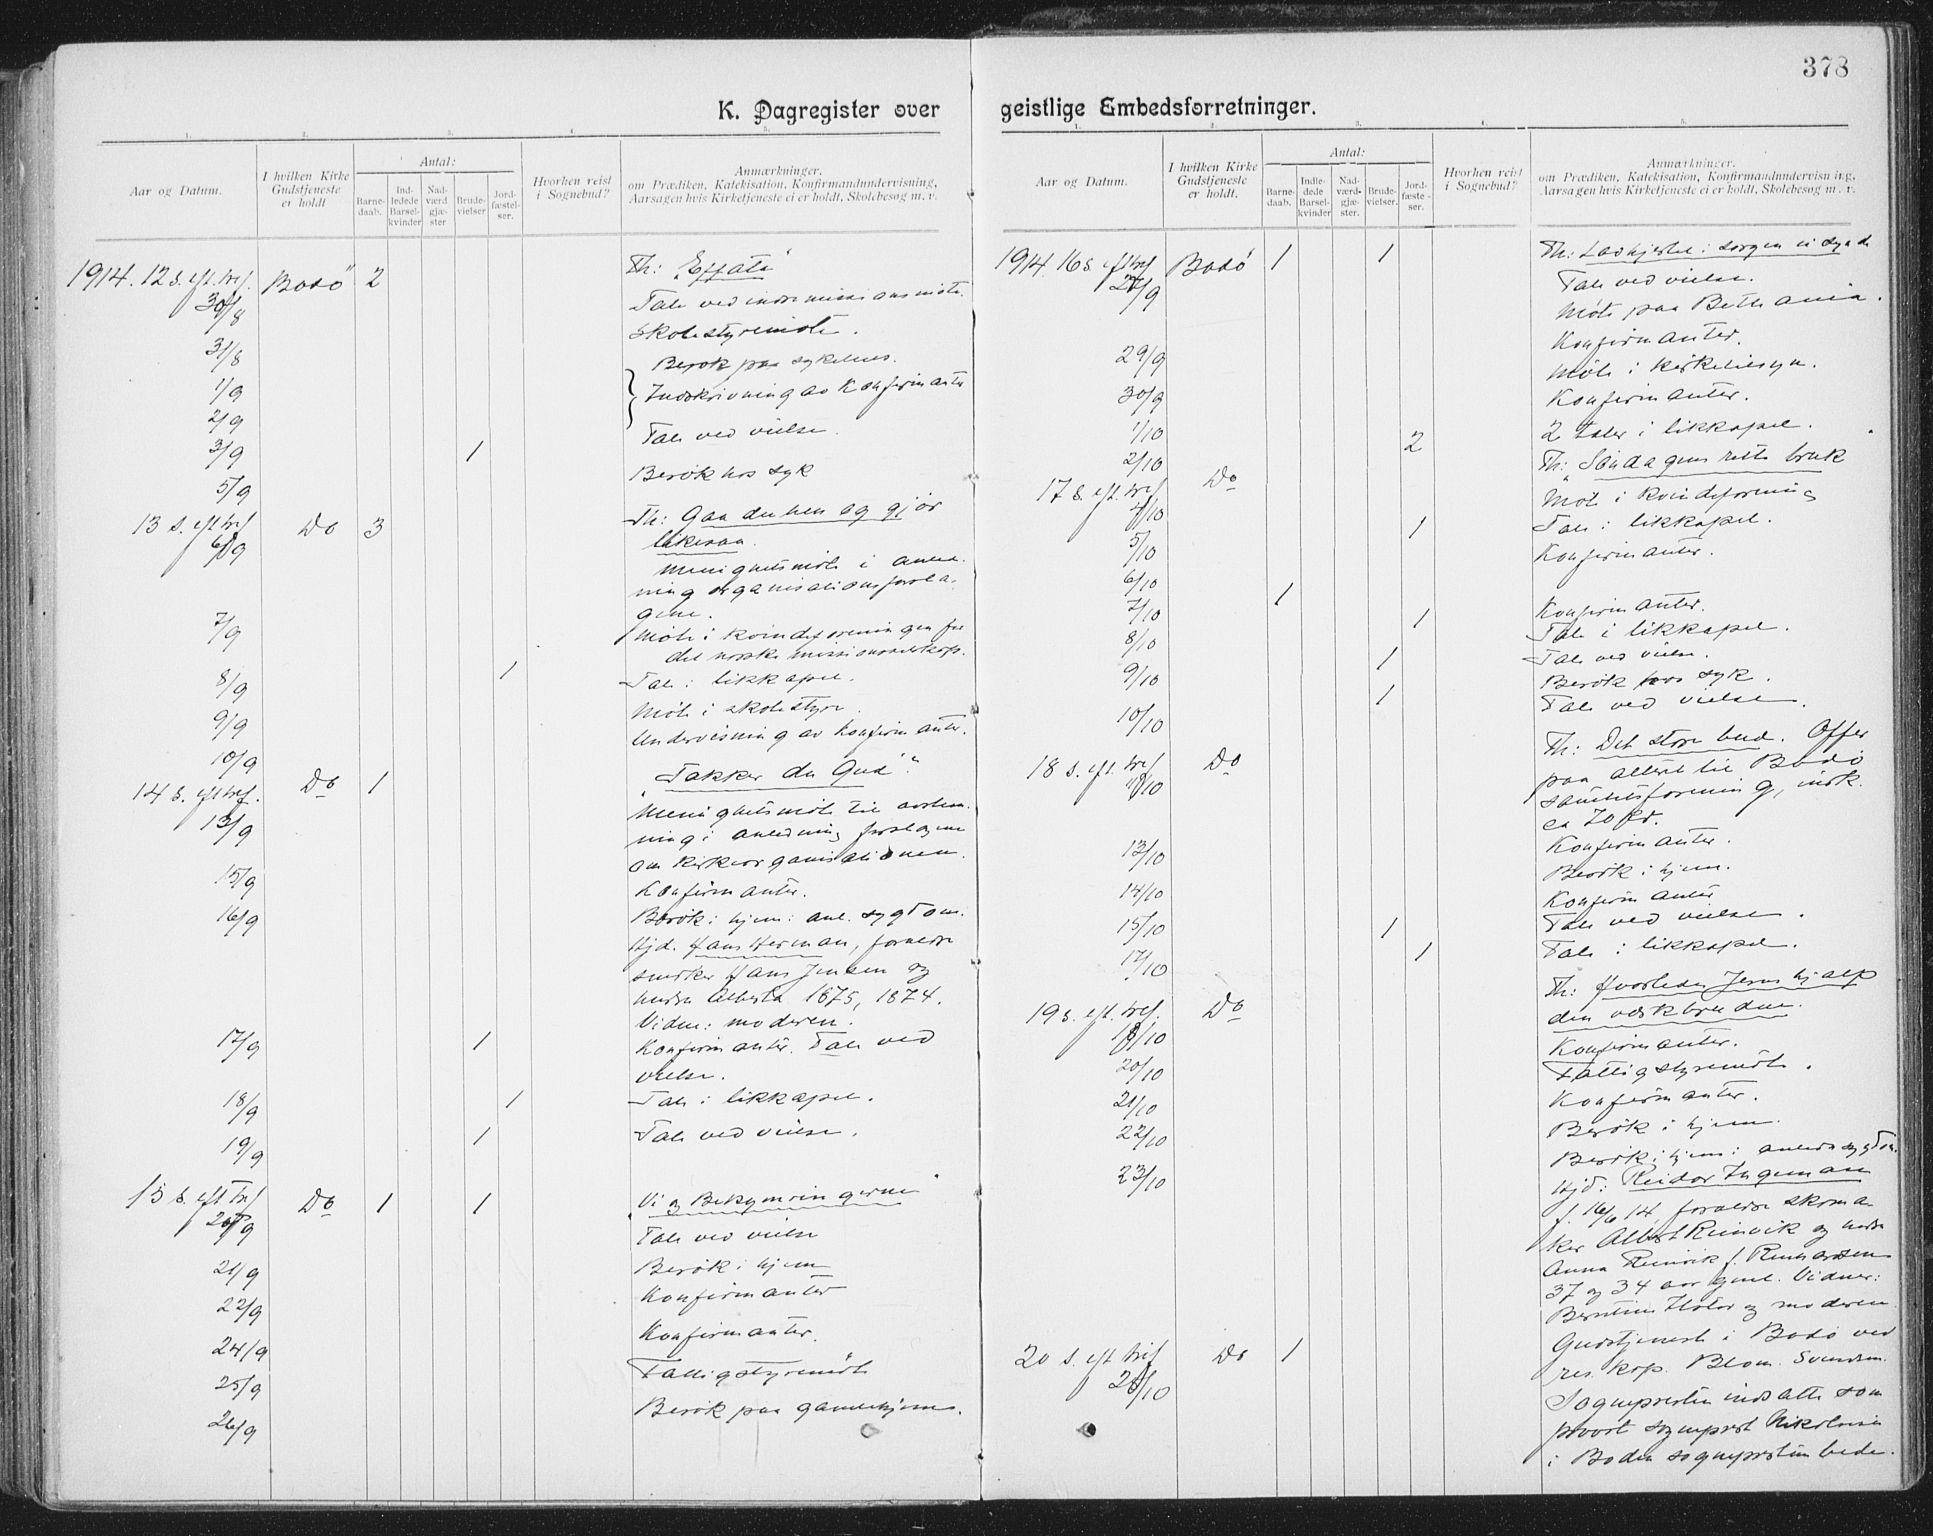 378
K. Dagregister over geistlige Embedsforretninger.
1. 2. 3. 4. 5.
Aar og Datum.
I hvilken Kirke Gudstjeneste er holdt
Antal:
Barnedaab.
Indledede Barselkvinder
Nadværdgjæster
Brudevielser
Jordfæstelser.
Hvorhen reist i Sognebud?
Anmærkninger.
om Prædiken, Katekisation, Konfirmandundervisning,
Aarsagen hvis Kirketjeneste ei er holdt, Skolebesøg m. v.
1914. 12 s. eft. tref. 30/8 Bodö 2 Th: "Effata"
Tale ved indremissionsmöte.
31/8 Skolestyremöte.
1/9 Besök paa sykehus.
2/9 Indskrivning av Konfirmanter
3/9 1 Tale ved vielse.
5/9 Besök hos syk
13 s. eft tref 6/9 Do 3 Th: Gaa du hen og gjör
likesaa.
Menighetsmöte i anled-
ning organisationsforsla-
gene.
7/9 Möte i kvindeforeningen for
det norske missionsselskap.
8/9 1 Tale i likkapel.
9/9 Möte i skolestyre.
10/9 Undervisning av konfirmanter.
14 s. eft tref. 13/9 Do 1 "Takker du Gud".
Menighetsmöte til avstem-
ning i anledning forslagene
om kirkeorganisationen.
15/9 Konfirmanter.
16/9 Besök i hjem: anl. sygdom.
Hjd. Hans Herman, foreldre
snedker Hans Jensen og
hustru Alberta 1875, 1874.
Vidne: moderen.
17/9 1 Konfirmanter. Tale ved
vielse.
18/9 1 Tale i likkapel.
19/9 1 Tale ved vielse.
15 s. eft Tref 20/9 Do 1 1 "Vi og Bekymringerne"
Tale ved vielse
21/9 Besök i hjem
22/9 Konfirmanter
24/9 Konfirmanter.
25/9 Fattigstyremöte
26/9 Besök paa gamlehjem.
1. 2. 3. 4. 5.
Aar og Datum.
I hvilken Kirke Gudstjeneste er holdt.
Antal:
Barnedaab.
Indledede Barselkvinder
Nadværdgjæster.
Brudevielser.
Jordfæstelser.
Hvorhen reist i Sognebud?
Anmærkninger.
om Prædiken, Katekisation, Konfirmandundervisning,
Aarsagen hvis Kirketjeneste ei er holdt, Skolebesøg m. v.
1914 16 s. eft tref 27/9 Bodö 1 1 Th: i sorgen
Tale ved vielse.
Möte paa Bethania.
29/9 Konfirmanter.
Möte i kirketilsyn.
30/9 Konfirmanter.
1/10
2/10 2 2 taler i likkapel.
17 s. eft. tref 4/10 Do Th: Söndagens rette bruk
5/10 Möte i kvindeforening
1 Tale i likkapel.
6/10 Konfirmanter.
7/10 1
8/10 1 Konfirmanter.
Tale i likkapel.
9/10 1 Tale ved vielse.
Besök hos syk.
10/10 1 Tale ved vielse.
18 s. eft. tref 11/10 Do Th: Det store bud. Offer
paa alteret til Bodö
samtitsforening, indk.
ca 70 kr.
13/10 Konfirmanter.
14/10 Besök i hjem.
15/10 1 Konfirmanter
Tale ved vielse.
17/10 1 Tale i likkapel.
19 s. eft. tref. 18/10 Do Th: Hvorledes Jesus hjalp
den verkbrudne.
20/10 Konfirmanter.
Fattigstyremöte.
21/10 Konfirmanter.
22/10 Besök i hjem.
23/10 Besök i hjem: anledn sygdom.
Hjd: Reidar Ingeman
f. 16/6 14, forældre skoma-
ker Albert Reinvik og hustru
Anna Reinvik f. Reinhardsen
37 og 34 aar gml. Vidner:
Berntine og moderen
20 s. eft tref 25/10 Do 1 Gudstjeneste i Bodö ved
res. kap. Blom Svendsen.
Sognepresten indsatte som
provst sogneprest Nikolaisen
i Bodin sogneprestembede.